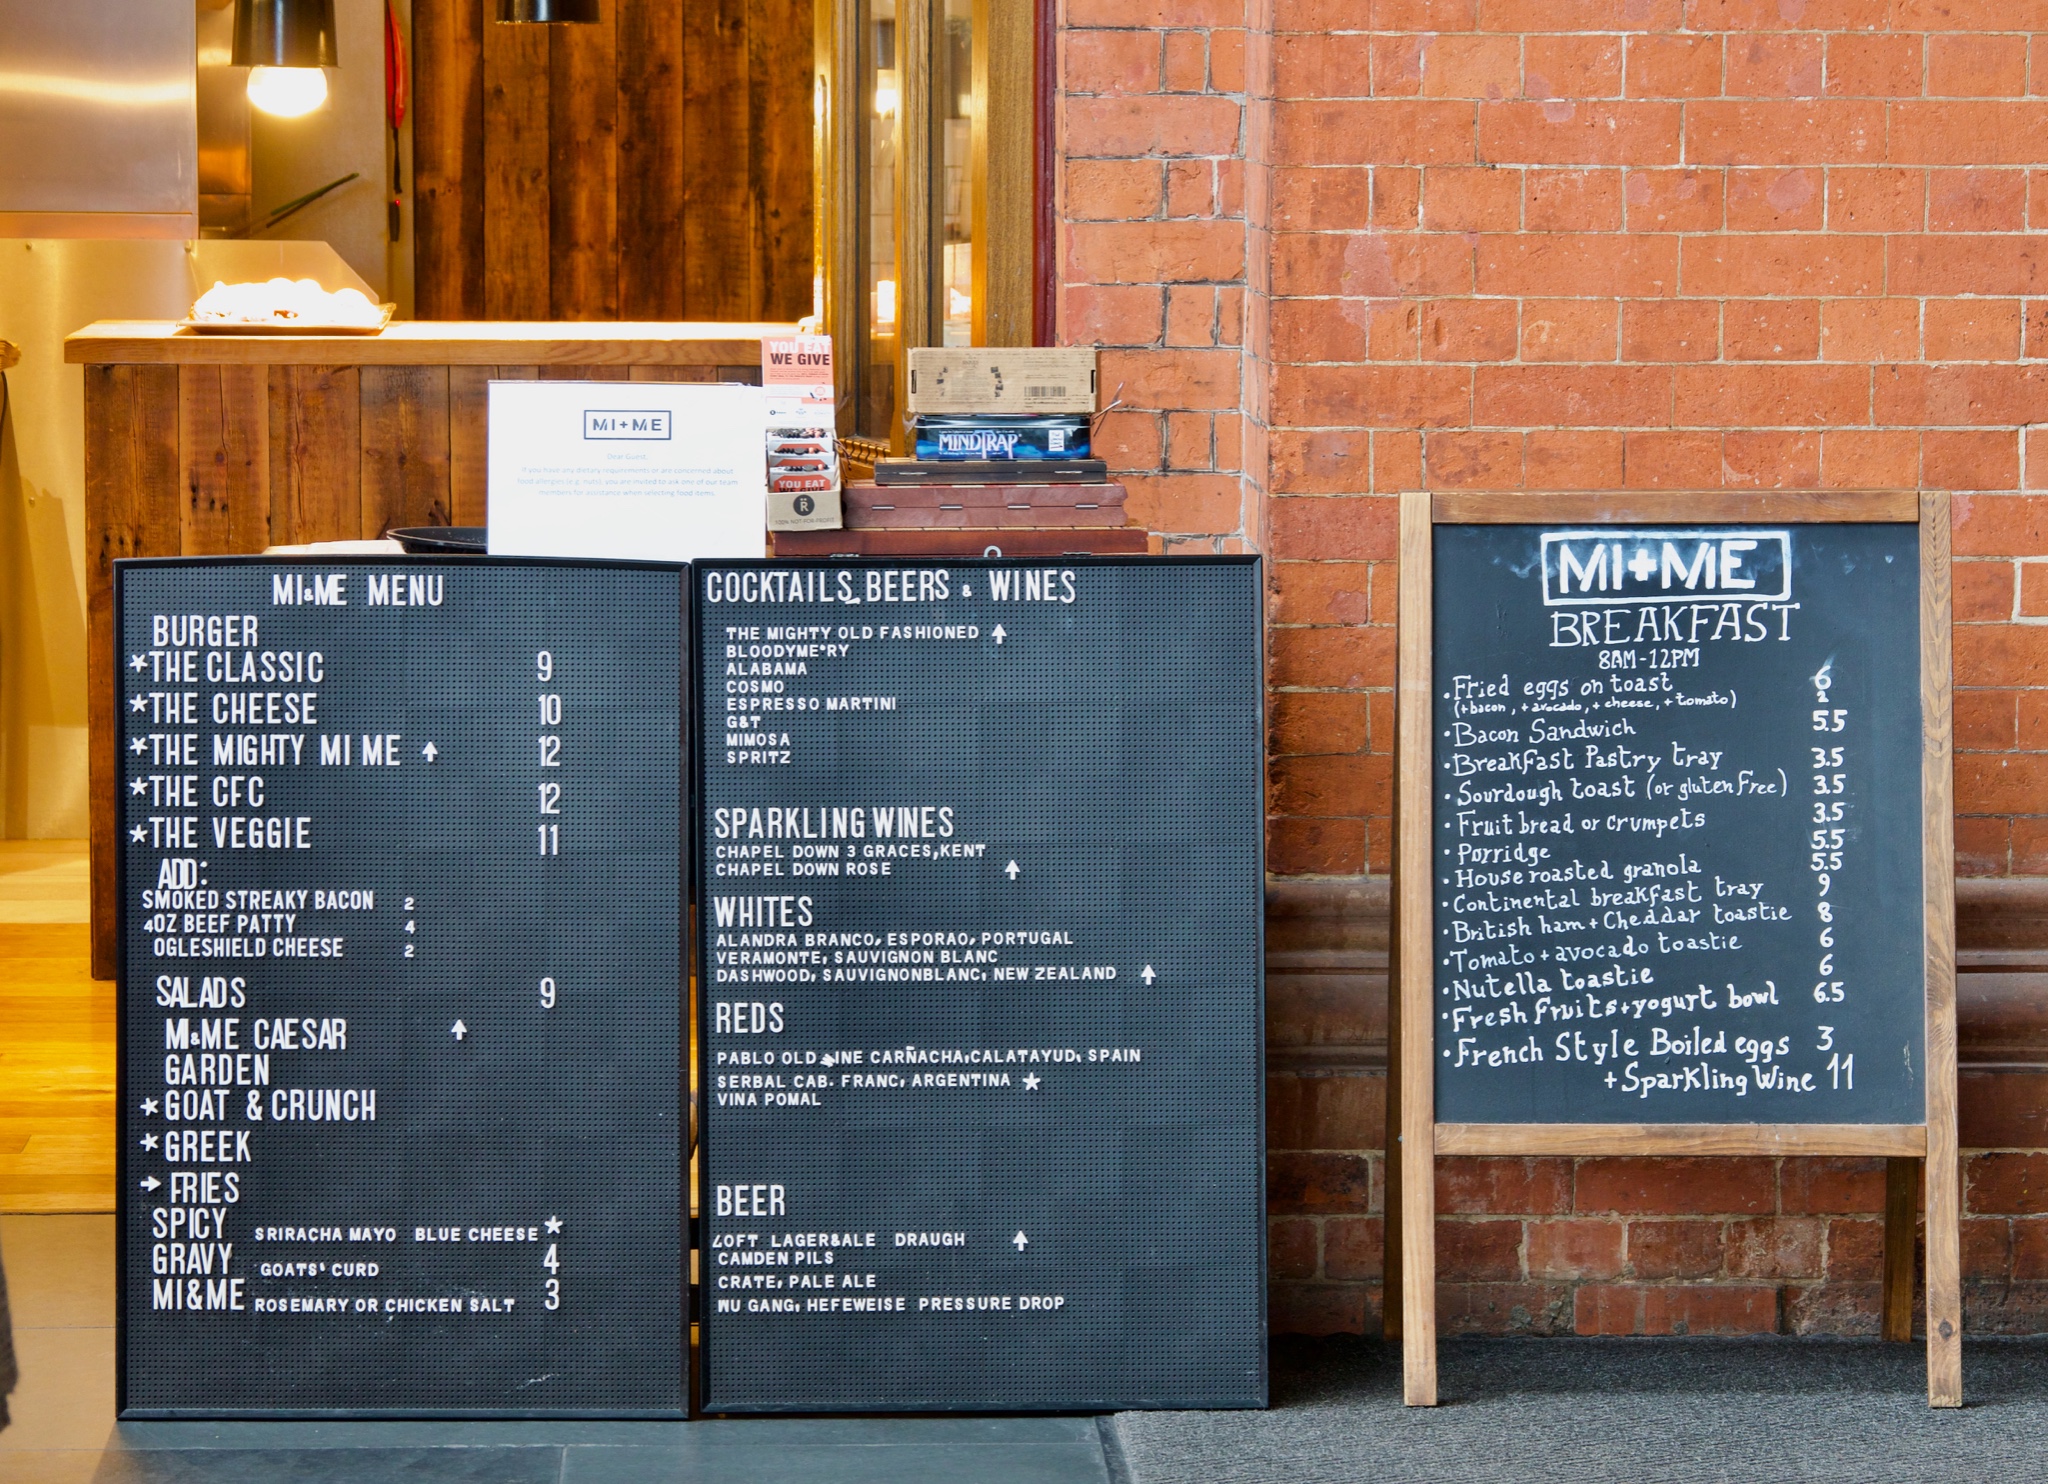 YOU EAT
WE GIVE
MI+ME
Dear Guest,
If you have any dietary requirements or are concerned about
food allergies (e.g. nuts), you are invited to ask one of our team
members for assistance when selecting food items.
YOU EAT
WE GIVE
R
100% NOT-FOR-PROFIT
MINDTRAP
MI&ME MENU
BURGER
*THE CLASSIC 9
*THE CHEESE 10
*THE MIGHTY MI ME ↑ 12
*THE CFC 12
*THE VEGGIE 11
ADD:
SMOKED STREAKY BACON 2
4OZ BEEF PATTY 4
OGLESHIELD CHEESE 2
SALADS 9
MI&ME CAESAR ↑
GARDEN
*GOAT & CRUNCH
*GREEK
→ FRIES
SPICY SRIRACHA MAYO BLUE CHEESE *
GRAVY GOATS' CURD 4
MI&ME ROSEMARY OR CHICKEN SALT 3
COCKTAILS, BEERS & WINES
THE MIGHTY OLD FASHIONED ↑
BLOODYME*RY
ALABAMA
COSMO
ESPRESSO MARTINI
G&T
MIMOSA
SPRITZ
SPARKLING WINES
CHAPEL DOWN 3 GRACES,KENT
CHAPEL DOWN ROSE ↑
WHITES
ALANDRA BRANCO, ESPORAO, PORTUGAL
VERAMONTE, SAUVIGNON BLANC
DASHWOOD, SAUVIGNONBLANC, NEW ZEALAND ↑
REDS
PABLO OLD INE CARÑACHA,CALATAYUD, SPAIN
SERBAL CAB. FRANC, ARGENTINA *
VINA POMAL
BEER
LOFT LAGER&ALE DRAUGH ↑
CAMDEN PILS
CRATE, PALE ALE
WU GANG, HEFEWEISE PRESSURE DROP
MI+ME
BREAKFAST
8AM-12PM
• Fried eggs on toast 6
(+bacon, +avocado, +cheese, +tomato) 2
• Bacon Sandwich 5.5
• Breakfast Pastry tray 3.5
• Sourdough toast (or gluten free) 3.5
• Fruit bread or crumpets 3.5
• Porridge 5.5
• House roasted granola 5.5
• Continental breakfast tray 9
• British ham + Cheddar toastie 8
• Tomato + avocado toastie 6
• Nutella toastie 6
• Fresh fruits+yogurt bowl 6.5
• French Style Boiled eggs 3
+Sparkling Wine 11